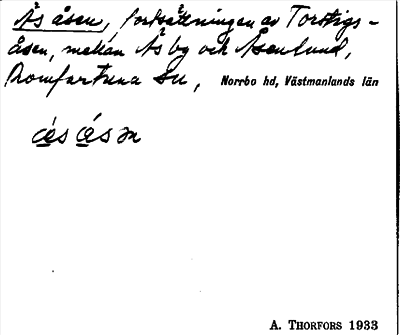 Ås åsen, fortsättningen av Tortigs-
åsen, mellan Åsby och Åsenlund,
Romfartuna sn, Norrbo hd, Västmanlands län
A. THORFORS 1933